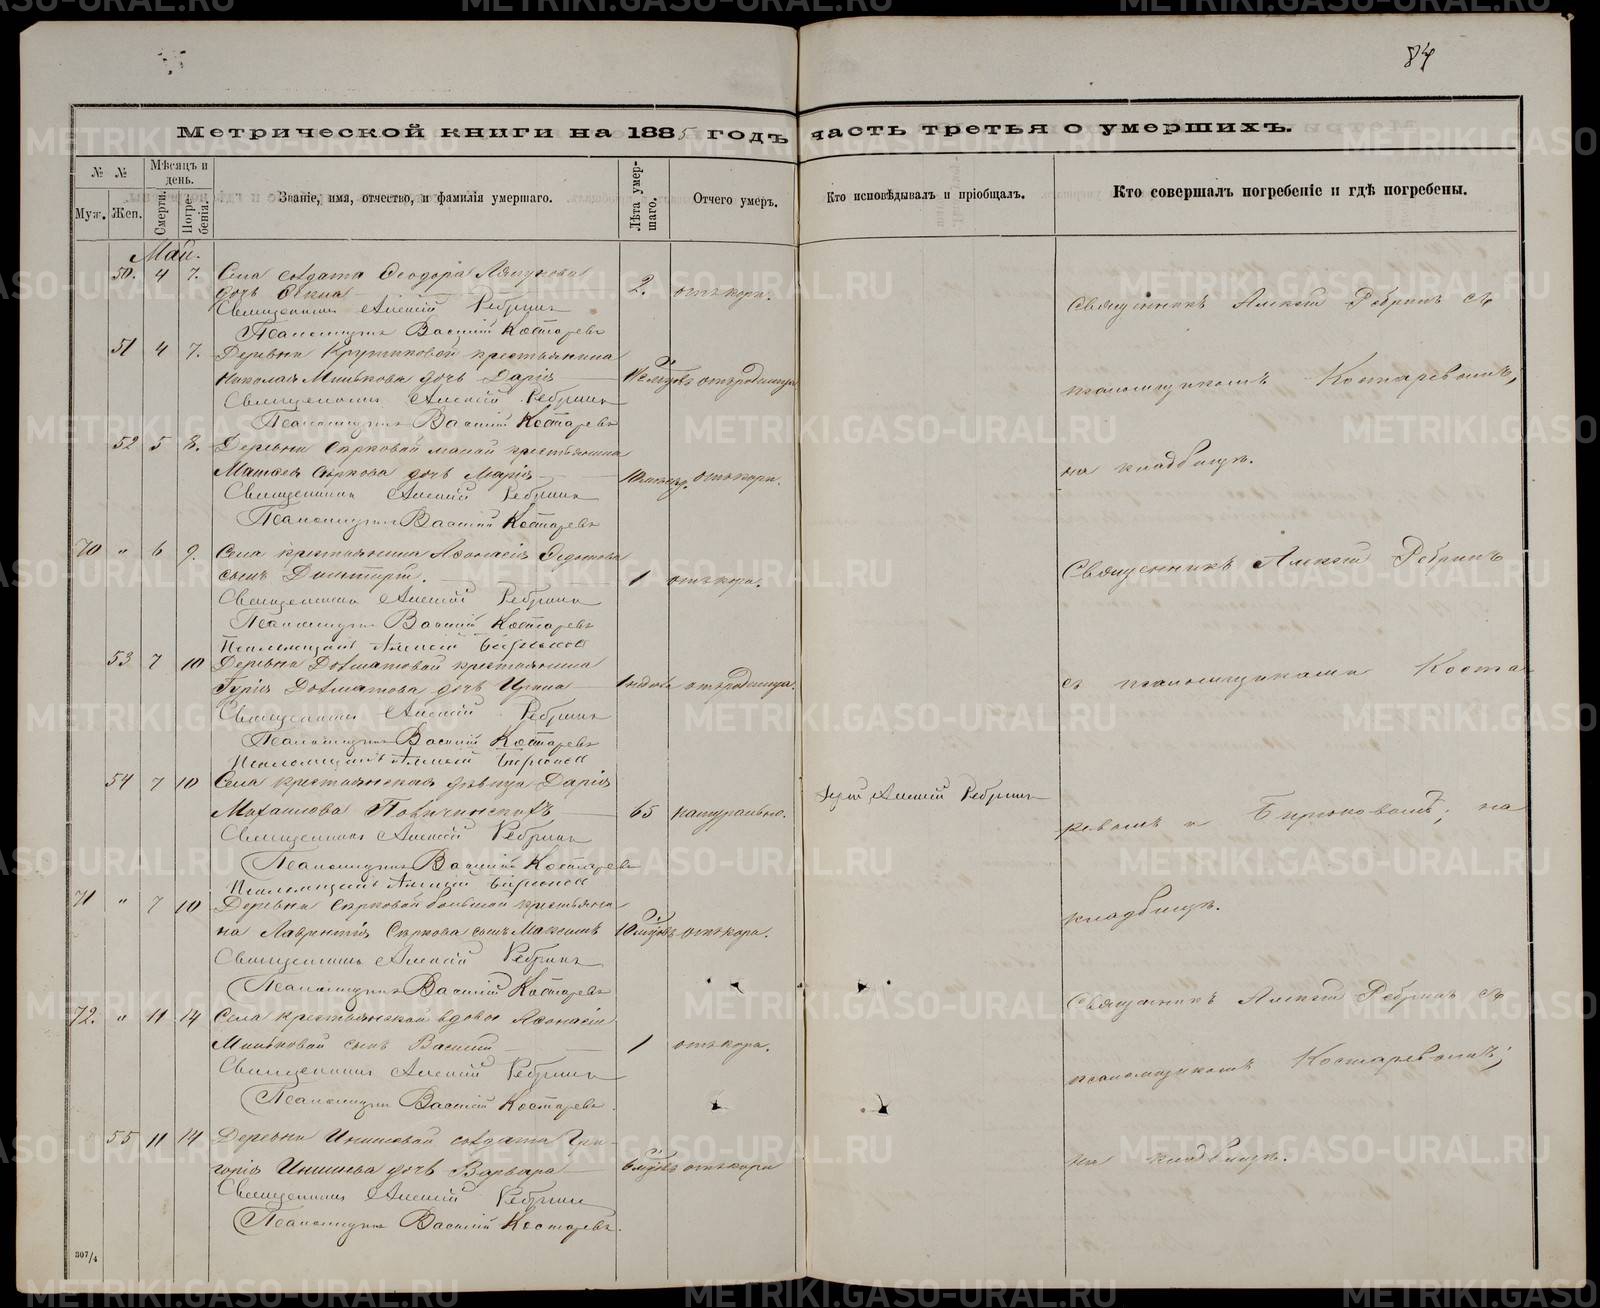 84
Метрической книги на 1885 годъ часть третья о умершихъ.
№ № Мѣсяцъ и день. Званіе, имя, отчество, и фамилія умершаго. Лѣта умершаго. Отчего умеръ. Кто исповѣдывалъ и пріобщалъ. Кто совершалъ погребеніе и гдѣ погребены.
Муж. Жен. Смерти. Погребенія.
Май.
50. 4 7. Села солдата Ѳеодора
дочь 2. отъ кори.
Священникъ Алексій Ребринъ
Псаломщикъ Василій Костаревъ
Священникъ Алексій Ребринъ съ
51 4 7. Деревни Крутиковой крестьянина
Николая Мшькова дочь Дарія отъ родимца
Священникъ Алексій Ребринъ
Псаломщикъ Василій Костаревъ
псаломщикомъ Костаревымъ,
52 5 8. Деревни Сырковой малой крестьянина
Матѳея Сыркова дочь Марія 10 мѣсяц. отъ кори.
Священникъ Алексій Ребринъ
Псаломщикъ Василій Костаревъ
на кладбищѣ.
70 " 6 9. Села крестьянина Аѳанасія Ѳедотова
сынъ Димитрій. 1 отъ кори.
Священникъ Алексій Ребринъ
Псаломщикъ Василій Костаревъ
Псаломщикъ Алексій Бирюковъ
Священникъ Алексій Ребринъ
53 7 10 Деревни Долматовой крестьянина
Гурія Долматова дочь Ирина 1 недѣли отъ родимца.
Священникъ Алексій Ребринъ
Псаломщикъ Василій Костаревъ
Псаломщикъ Алексій Бирюковъ
съ псаломщиками Коста-
54 7 10 Села крестьянская дѣвица Дарія
Михаилова 65 натурально. Іерей Алексій Ребринъ
Священникъ Алексій Ребринъ
Псаломщикъ Василій Костаревъ
Псаломщикъ Алексій Бирюковъ
ревымъ и Бирюковымъ, на
71 " 7 10 Деревни Сырковой большой крестьяни-
на Лаврентія Сыркова сынъ Максимъ 10 мѣсяцовъ отъ кори.
Священникъ Алексій Ребринъ
Псаломщикъ Василій Костаревъ
кладбищѣ.
72. " 11 14 Села крестьянской вдовы Аѳанасіи
сынъ Василій 1 отъ кори.
Священникъ Алексій Ребринъ
Псаломщикъ Василій Костаревъ
Священникъ Алексій Ребринъ съ
псаломщикомъ Костаревымъ,
55 11 14 Деревни Иншиной солдата Гри-
горія Иншина дочь Варвара отъ кори
Священникъ Алексій Ребринъ
Псаломщикъ Василій Костаревъ.
на кладбищѣ.
307/4
METRIKI.GASO-URAL.RU